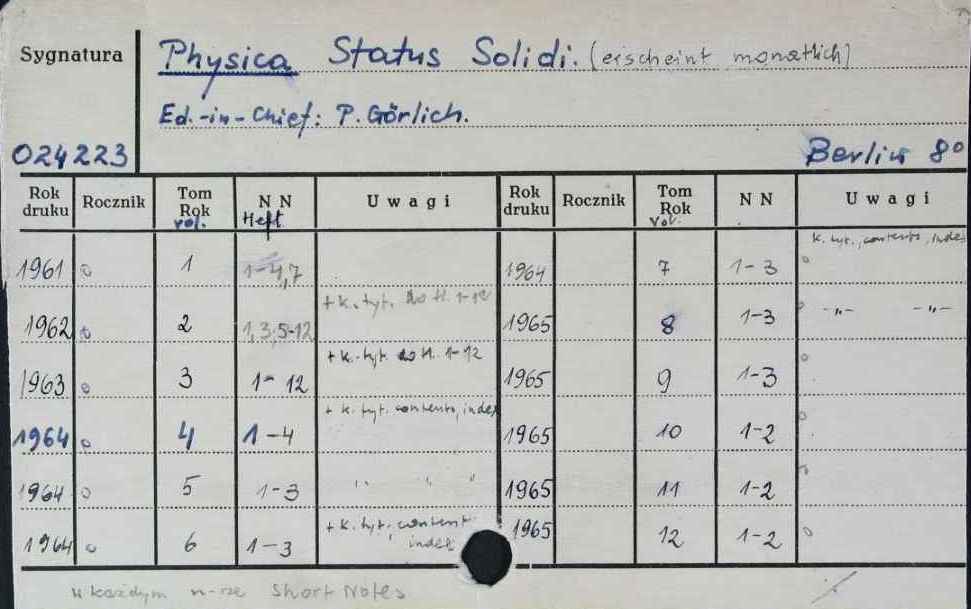 Sygnatura
Physica Status Solidi. (erscheint monatlich)
Ed.-in-Chief: P. Görlich.
024223
Berlin 8°
Rok druku Rocznik Tom Rok vol. N N Heft Uwagi Rok druku Rocznik Tom Rok vol. N N Uwagi
k. tyt., contents, index
1961 0 1 1-4,7 1964 7 1-3 0
+ k. tyt. do H. 1-12
1962 0 2 1,3,5-12 1965 8 1-3 0 -„- -„-
+ k. tyt. do H. 1-12
1963 0 3 1-12 1965 9 1-3 0
+ k. tyt. contents, index
1964 0 4 1-4 1965 10 1-2 0
1964 0 5 1-3 " " " 1965 11 1-2 0
+ k. tyt., content index
1964 0 6 1-3 1965 12 1-2 0
w każdym n-rze Short Notes